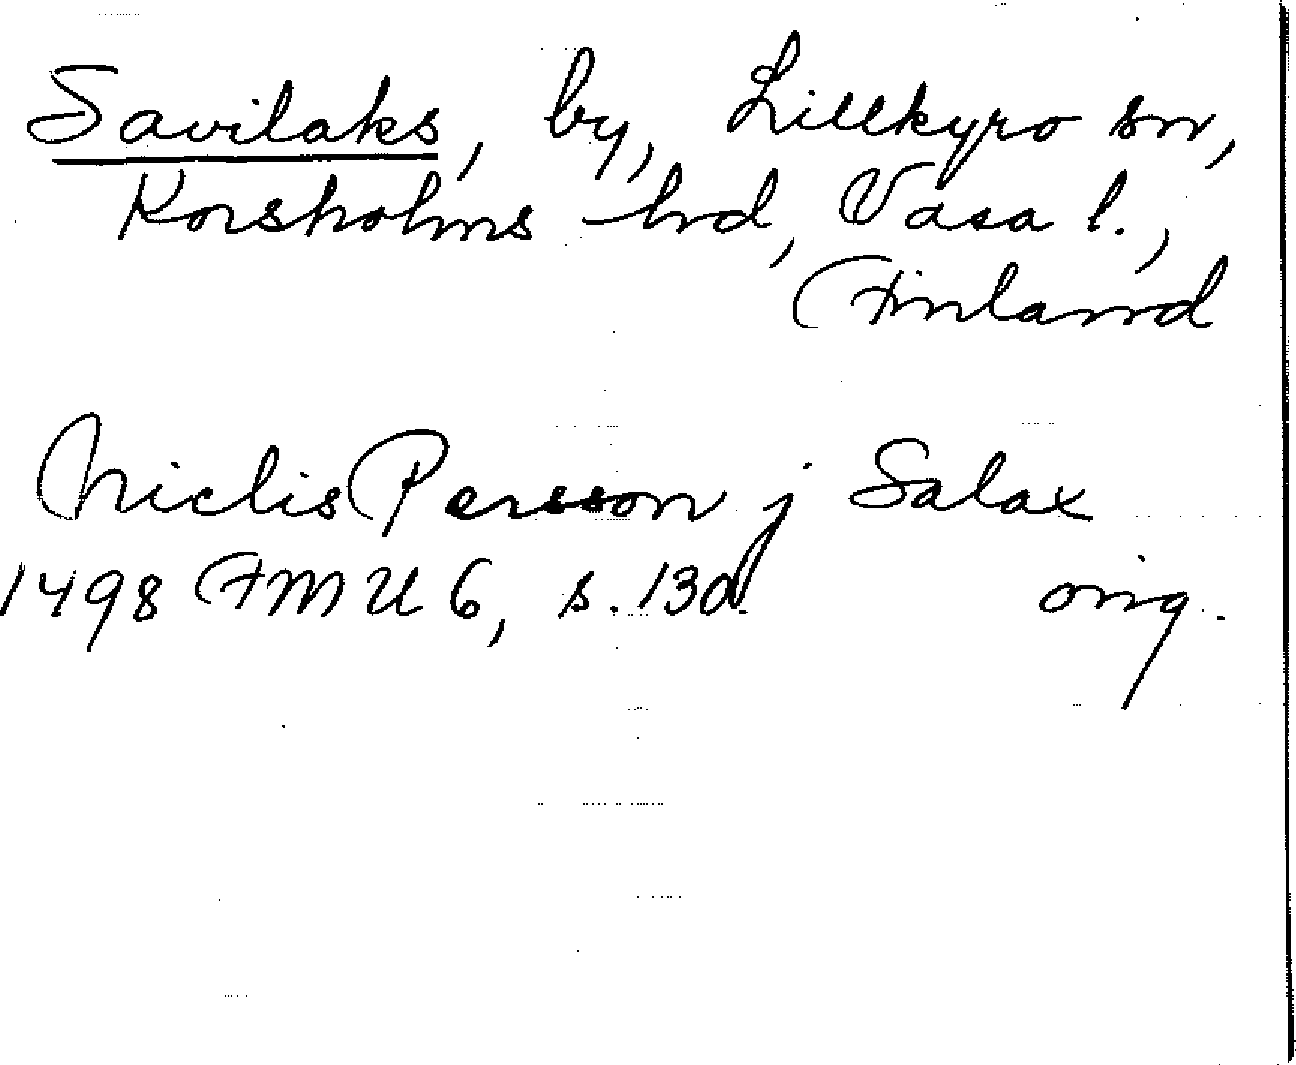 Savilaks, by, Lillkyro sn,
Korsholms hd, Vasa l.,
Finland
Niclis Persson j Salax
1498 FMU 6, s. 130. orig.